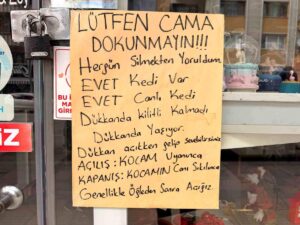 LÜTFEN CAMA
DOKUNMAYIN!!!
Hergün Silmekten Yoruldum.
EVET Kedi Var
EVET Canlı Kedi
Dükkanda kilitli Kalmadı
Dükkanda Yaşıyor.
Dükkan açıkken gelip Sevebilirsiniz
AÇILIŞ: KOCAM Uyanınca
KAPANIŞ: KOCAMIN Canı Sıkılınca
Genellikle Öğleden Sonra Açığız.
BU İ
MA
GİRE
İZ